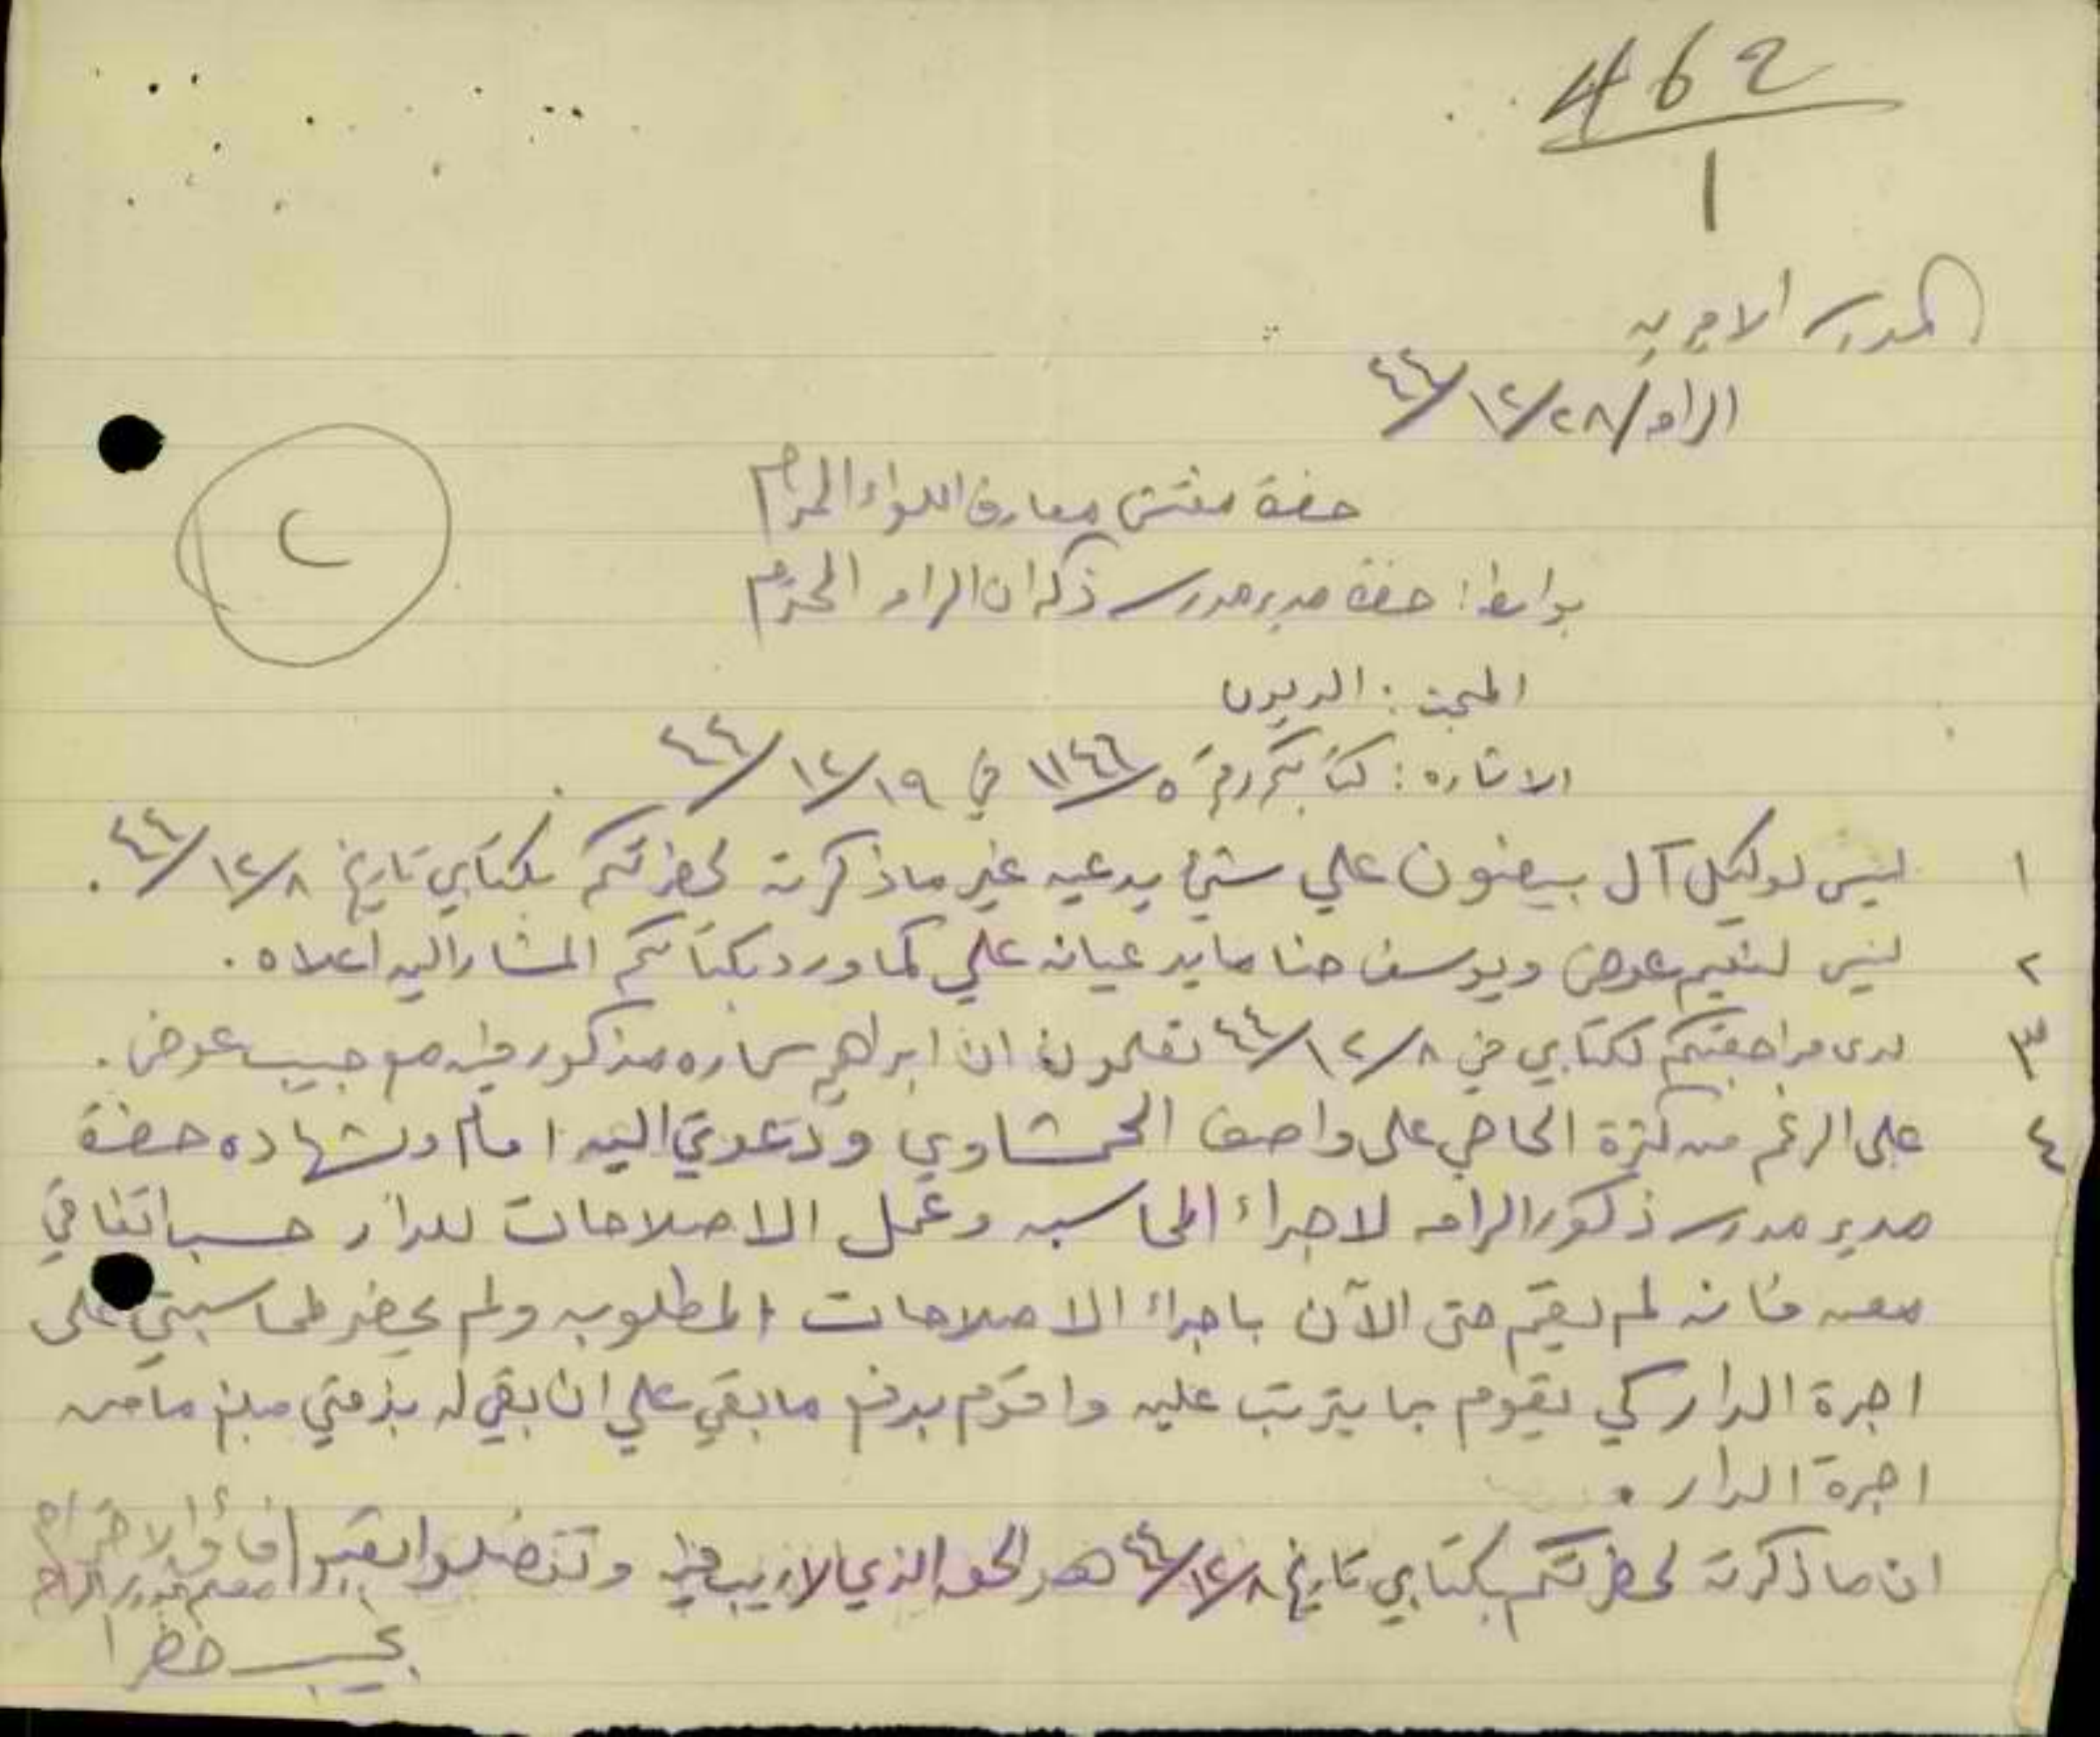 462
1
المدرسة الاميرية
الرامه /٢٨/١٢/٤٤
حضرة مفتش معارف اللواء المحترم
بواسطة: حضرة مدير مدرسة ذكران الرامه المحترم
المبحث: الديون
الاشاره: كتابكم رقم ٥/١١٤٦ في ١٩/١٢/٤٤
٢
١ ليس لوكيل آل بيضون علي شيء يدعيه غير ما ذكرته لحضرتكم بكتابي تاريخ ٨/١٢/٤٤.
٢ ليس لنعيم عوض ويوسف حنا ما يدعيانه علي كما ورد بكتابكم المشار اليه اعلاه.
٣ لدى مراجعتكم لكتابي في ٨/١٢/٤٤ تعلمون ان ابراهيم سماره مذكور فيه مع حبيب عوض.
٤ على الرغم من كثرة الحاحي على واصف الحمشاوي ودعوتي اليه امام وبشهاده حضرة
مدير مدرسة ذكور الرامه لاجراء المحاسبه وعمل الاصلاحات للدار حسب اتفاقي
معه فانه لم يقم حتى الآن باجراء الاصلاحات المطلوبه ولم يحضر لمحاسبتي على
اجرة الدار كي يقوم بما يترتب عليه واقوم بدفع ما بقي علي ان بقي له بذمتي مبلغ ما من
اجرة الدار.
ان ما ذكرته لحضرتكم بكتابي تاريخ ٨/١٢/٤٤ هو الحق الذي لا ريب فيه وتفضلوا بقبول فائق الاحترام
معلم مدرسة الرامه
نجيب خضرا